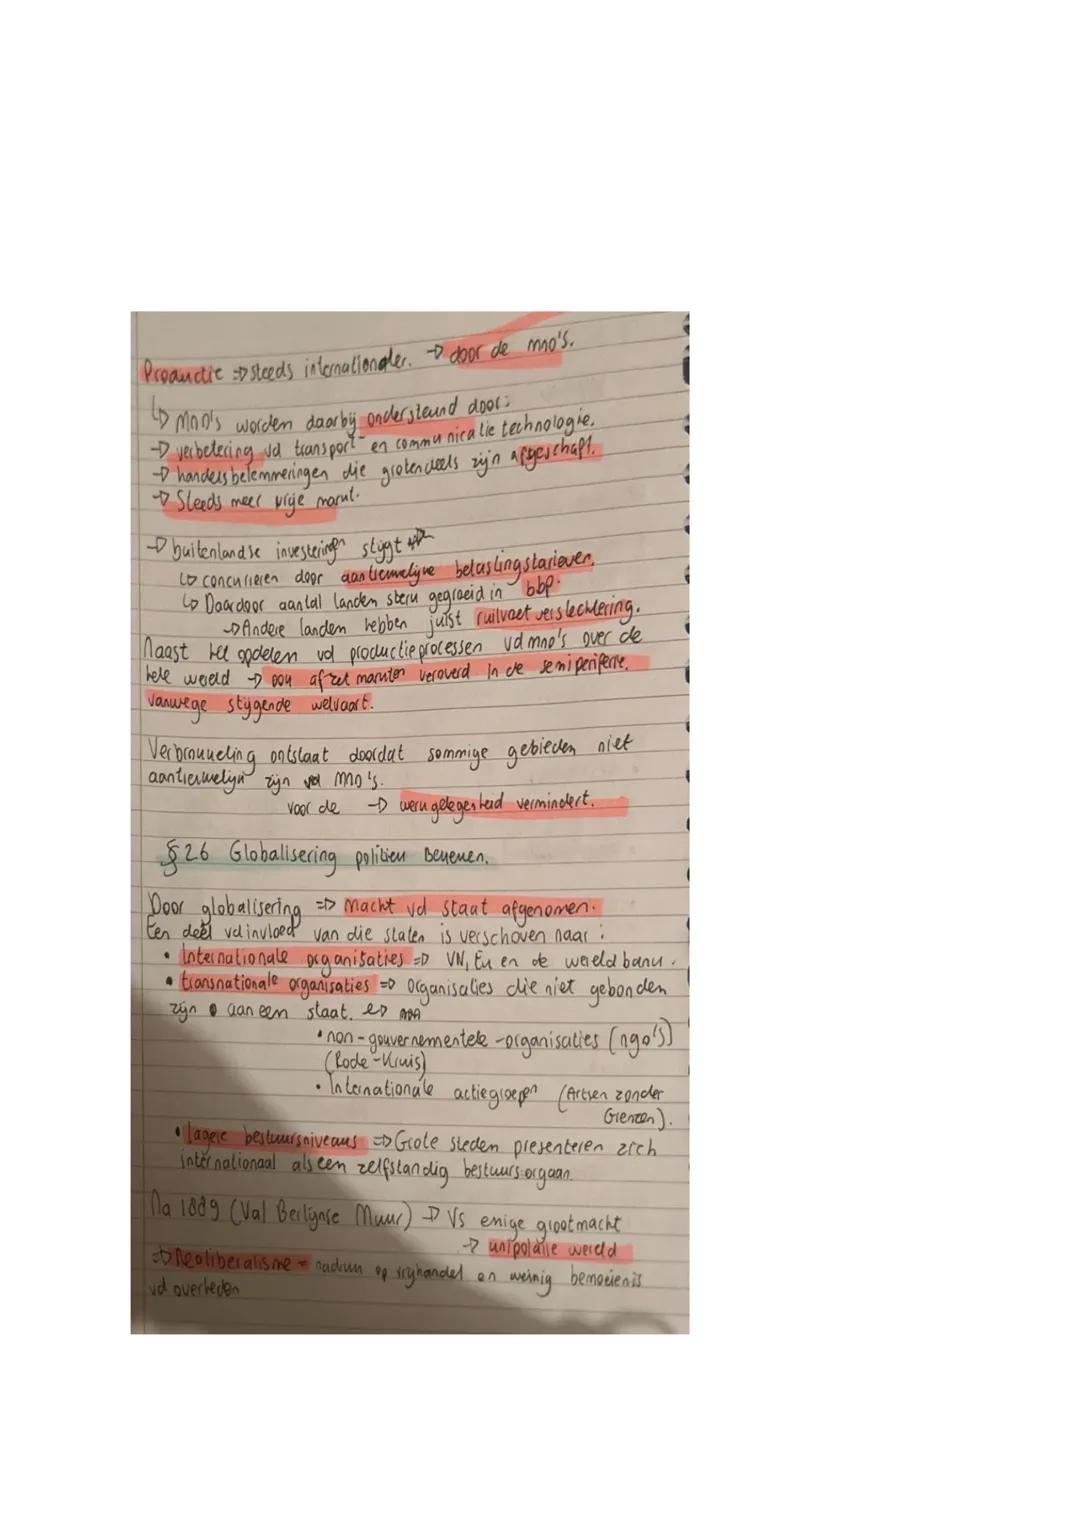 Productie => steeds internationaler. -> door de mno's.
↳ mno's worden daarbij ondersteund door:
-> verbetering vd transport- en communicatie technologie.
-> handelsbelemmeringen die grotendeels zijn afgeschaft.
-> Steeds meer vrije markt.
-> buitenlandse investeringen stijgt
↳ concurreren door aantrekkelijke belastingstarieven.
↳ Daardoor aantal landen sterk gegroeid in bbp.
-> Andere landen hebben juist ruilvoet verslechtering.
Naast het opdelen vd productieprocessen vd mno's over de
hele wereld -> ook afzet markten veroverd in de semiperiferie.
vanwege stijgende welvaart.
Verbrokkeling ontstaat doordat sommige gebieden niet
aantrekkelijk zijn mno's.
voor de -> werkgelegenheid vermindert.
§26 Globalisering politiek bekeken.
Door globalisering => macht vd staat afgenomen.
Een deel vd invloed van die staten is verschoven naar:
• Internationale organisaties => VN, Eu en de wereld bank.
• transnationale organisaties => organisaties die niet gebonden
zijn aan een staat.
• non-gouvernementele-organisaties (ngo's)
(Rode-Kruis)
• Internationale actiegroepen (Artsen zonder
Grenzen).
• lagere bestuursniveaus => Grote steden presenteren zich
internationaal als een zelfstandig bestuurs orgaan.
Na 1889 (Val Berlijnse Muur) -> VS enige grootmacht
-> unipolaire wereld
=> Neoliberalisme = nadruk op vrijhandel en weinig bemoeienis
vd overheden